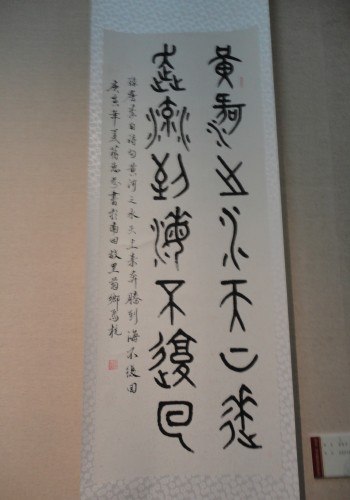 黃河之水天上來
奔流到海不復回
詩句黃河之水天上來奔騰到海不復回
庚寅年夏書於南田故里